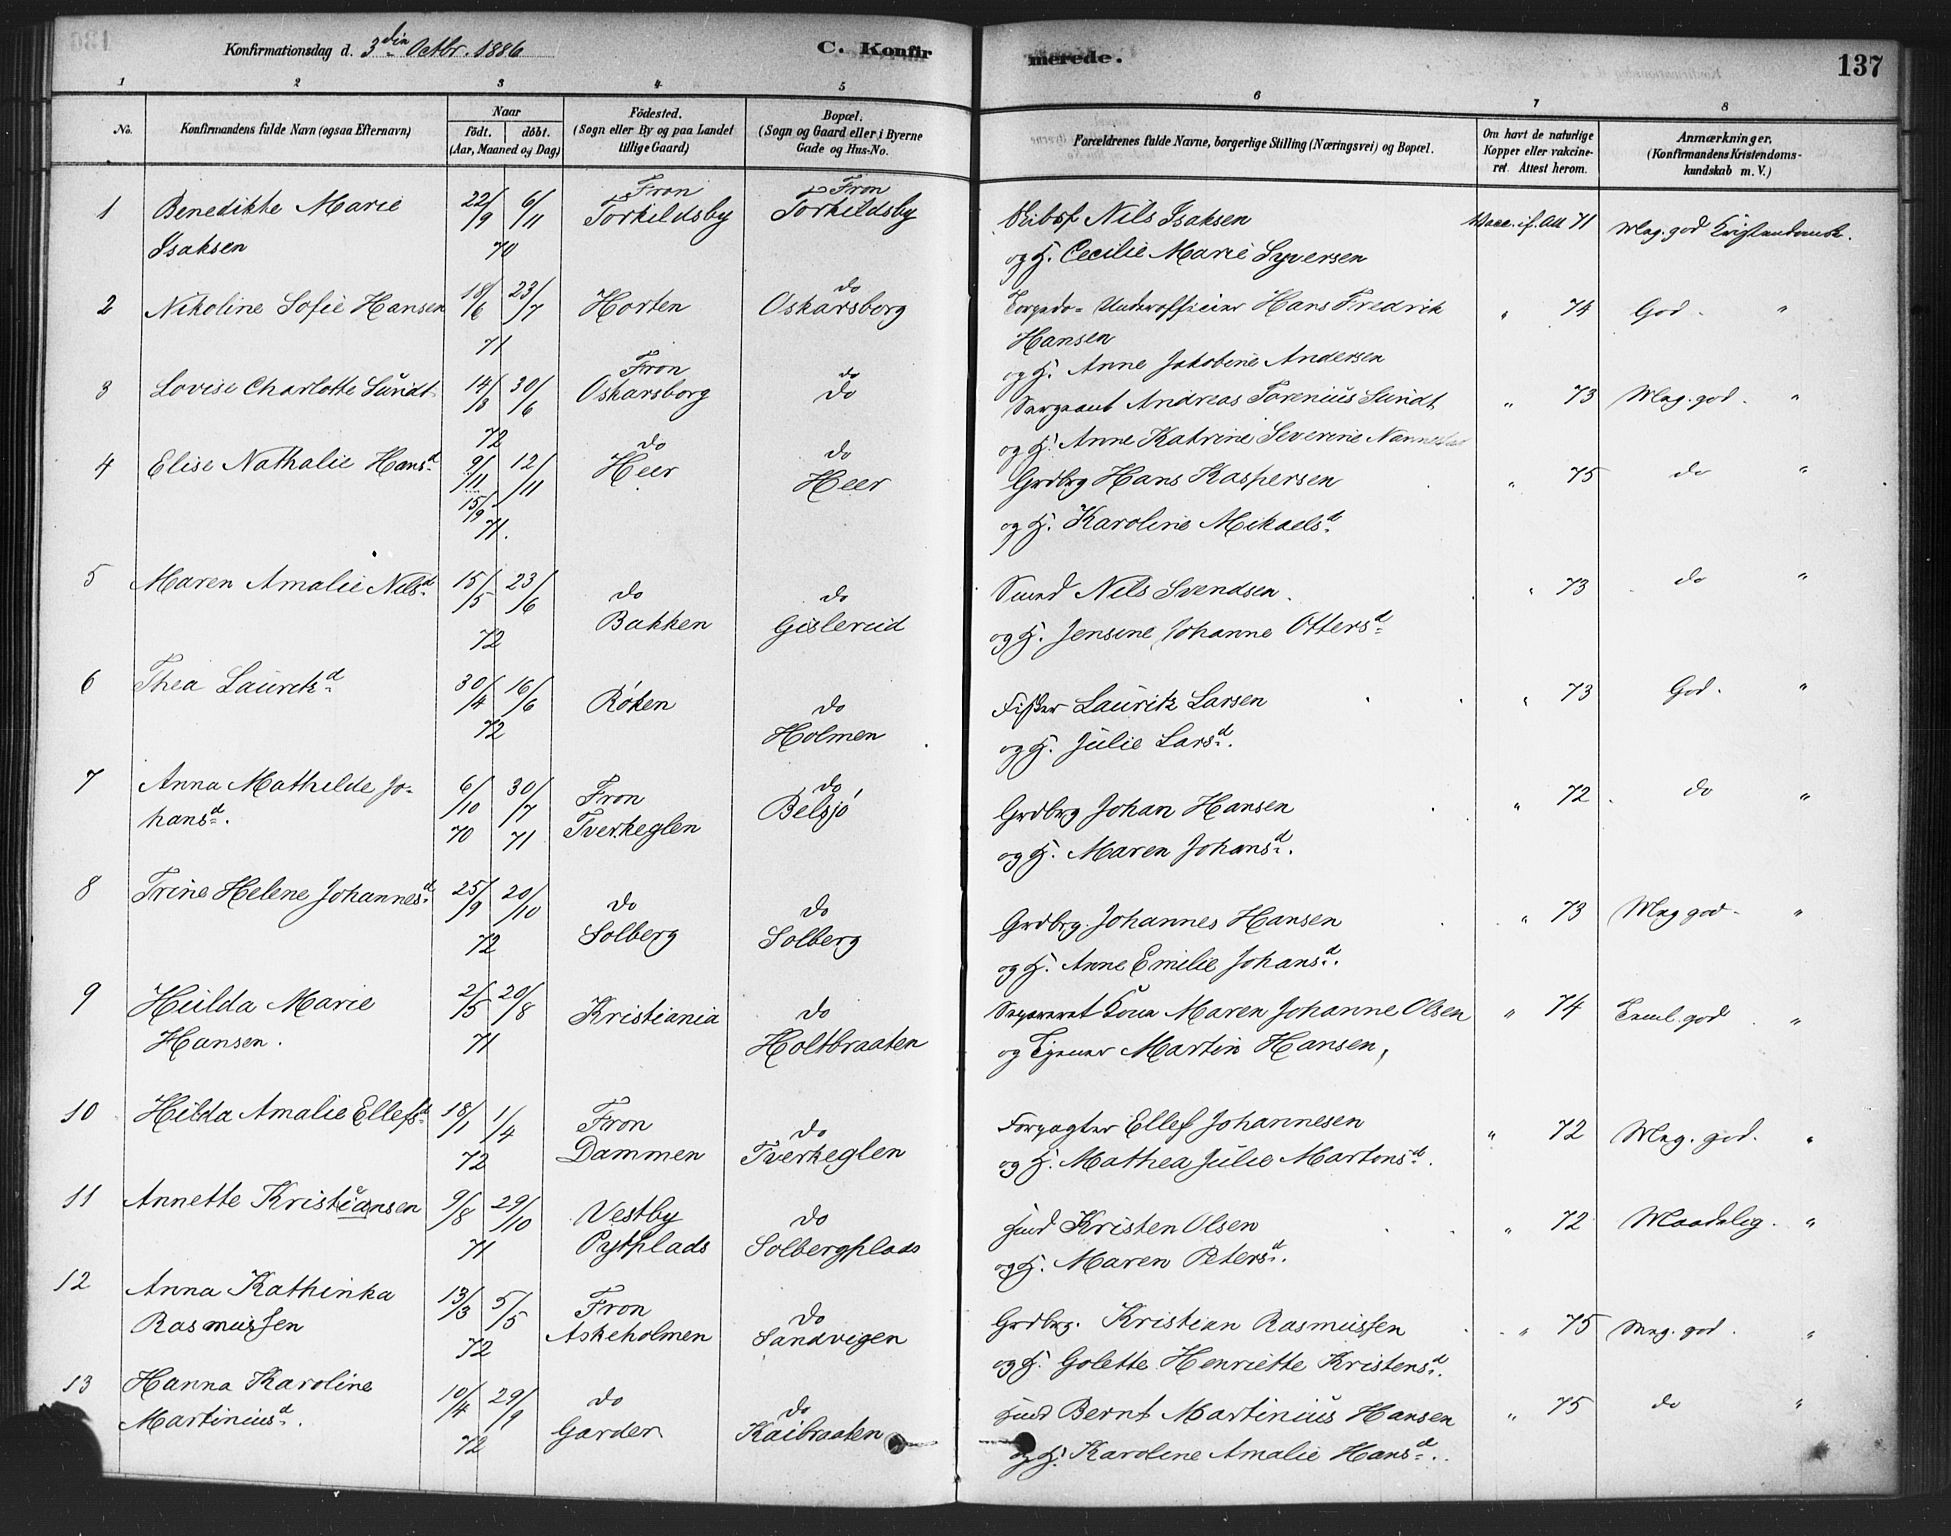 Konfirmationsdag d. 3die Octbr. 1886
C. Konfirmerede.
137
1 2 3 4 5 6 7 8
No.
Konfirmandens fulde Navn (ogsaa Efternavn)
Naar
födt. döbt.
(Aar, Maaned og Dag)
Födested.
(Sogn eller By og paa Landet
tillige Gaard)
Bopæl.
(Sogn og Gaard eller i Byerne
Gade og Hus-No.
Forældrenes fulde Navne, borgerlige Stilling (Næringsvei) og Bopæl.
Om havt de naturlige
Kopper eller vakcine-
ret. Attest herom.
Anmærkninger,
(Konfirmandens Kristendoms-
kundskab m. V.)
1 Benedikte Marie Isaksen 22/9 6/11 70 Fron Torkildsby Fron Torkildsby
Nils Isaksen
og H. Cecilie Marie Syversen
Vacc. if. Att 71 Meg. god Kristendomsk.
2 Nikoline Sofie Hansen 18/6 23/7 71 Horten do Oskarsborg
Torpedo-Underofficier Hans Fredrik
Hansen
og H. Anne Jakobine Andersen
" 74 God. "
3 Lovise Charlotte Sundt 14/3 30/6 72 Fron Oskarsborg do do
Sergeant Andreas Torenius Sundt
og H. Anne Katrine Severine Nannestad
" 73 Meg. god. "
4 Elise Nathalie Hansd. 9/11 15/9 12/11 71. do Heer do Heer
Grdbrg Hans Kaspersen
og H. Karoline Mikaelsd.
" 75 do "
5 Maren Amalie Nilsd. 15/5 23/6 72 do Bakken do Gislerud
Smed Nils Svendsen.
og H. Jensine Johanne Ottersd.
" 73 do "
6 Thea Lauritzd. 30/4 16/6 72 Røken do Holmen
Fisker Lauritz Larsen
og H. Julie Larsd.
" 73 God. "
7 Anna Mathilde Jo-
hansd. 6/10 70 30/7 71 Fron Tverkeglen do Belsjø
Grdbrg Johan Hansen
og H. Maren Johansd.
" 72 do "
8 Trine Helene Johannesd. 25/9 20/10 72 do Solberg do Solberg
Grdbrg. Johannes Hansen
og H. Anne Emilie Johansd.
" 73 Meg god. "
9 Hulda Marie
Hansen. 2/5 20/8 71 Kristiania do Holtbraaten
Separeret Kone Maren Johanne Olsen
og Tjener Martin Hansen,
" 74 Teml. god "
10 Hilda Amalie Ellefsd. 18/1 1/4 72 Fron Dammen do Tverkeglen
Forpagter Ellef Johannesen
og H. Mathea Julie Martensd.
" 72 Meg. god. "
11 Annette Kristiansen 9/8 29/10 71 Vestby Pytplads do Solbergplads
Hmd Kristen Olsen
og H. Maren Petersd.
" 72 Maadelig. "
12 Anna Kathinka
Rasmussen 13/3 5/5 72 Fron Askeholmen do Sandvigen
Grdbrg. Kristian Rasmussen
og H. Golette Henriette Kristensd.
" 75 Meg. god. "
13 Hanna Karoline
Martiniusd. 10/4 29/9 72 do Garder do Kaibraaten
Hmd Bernt Martinius Hansen
og H. Karoline Amalie Hansd.
" 75 do "